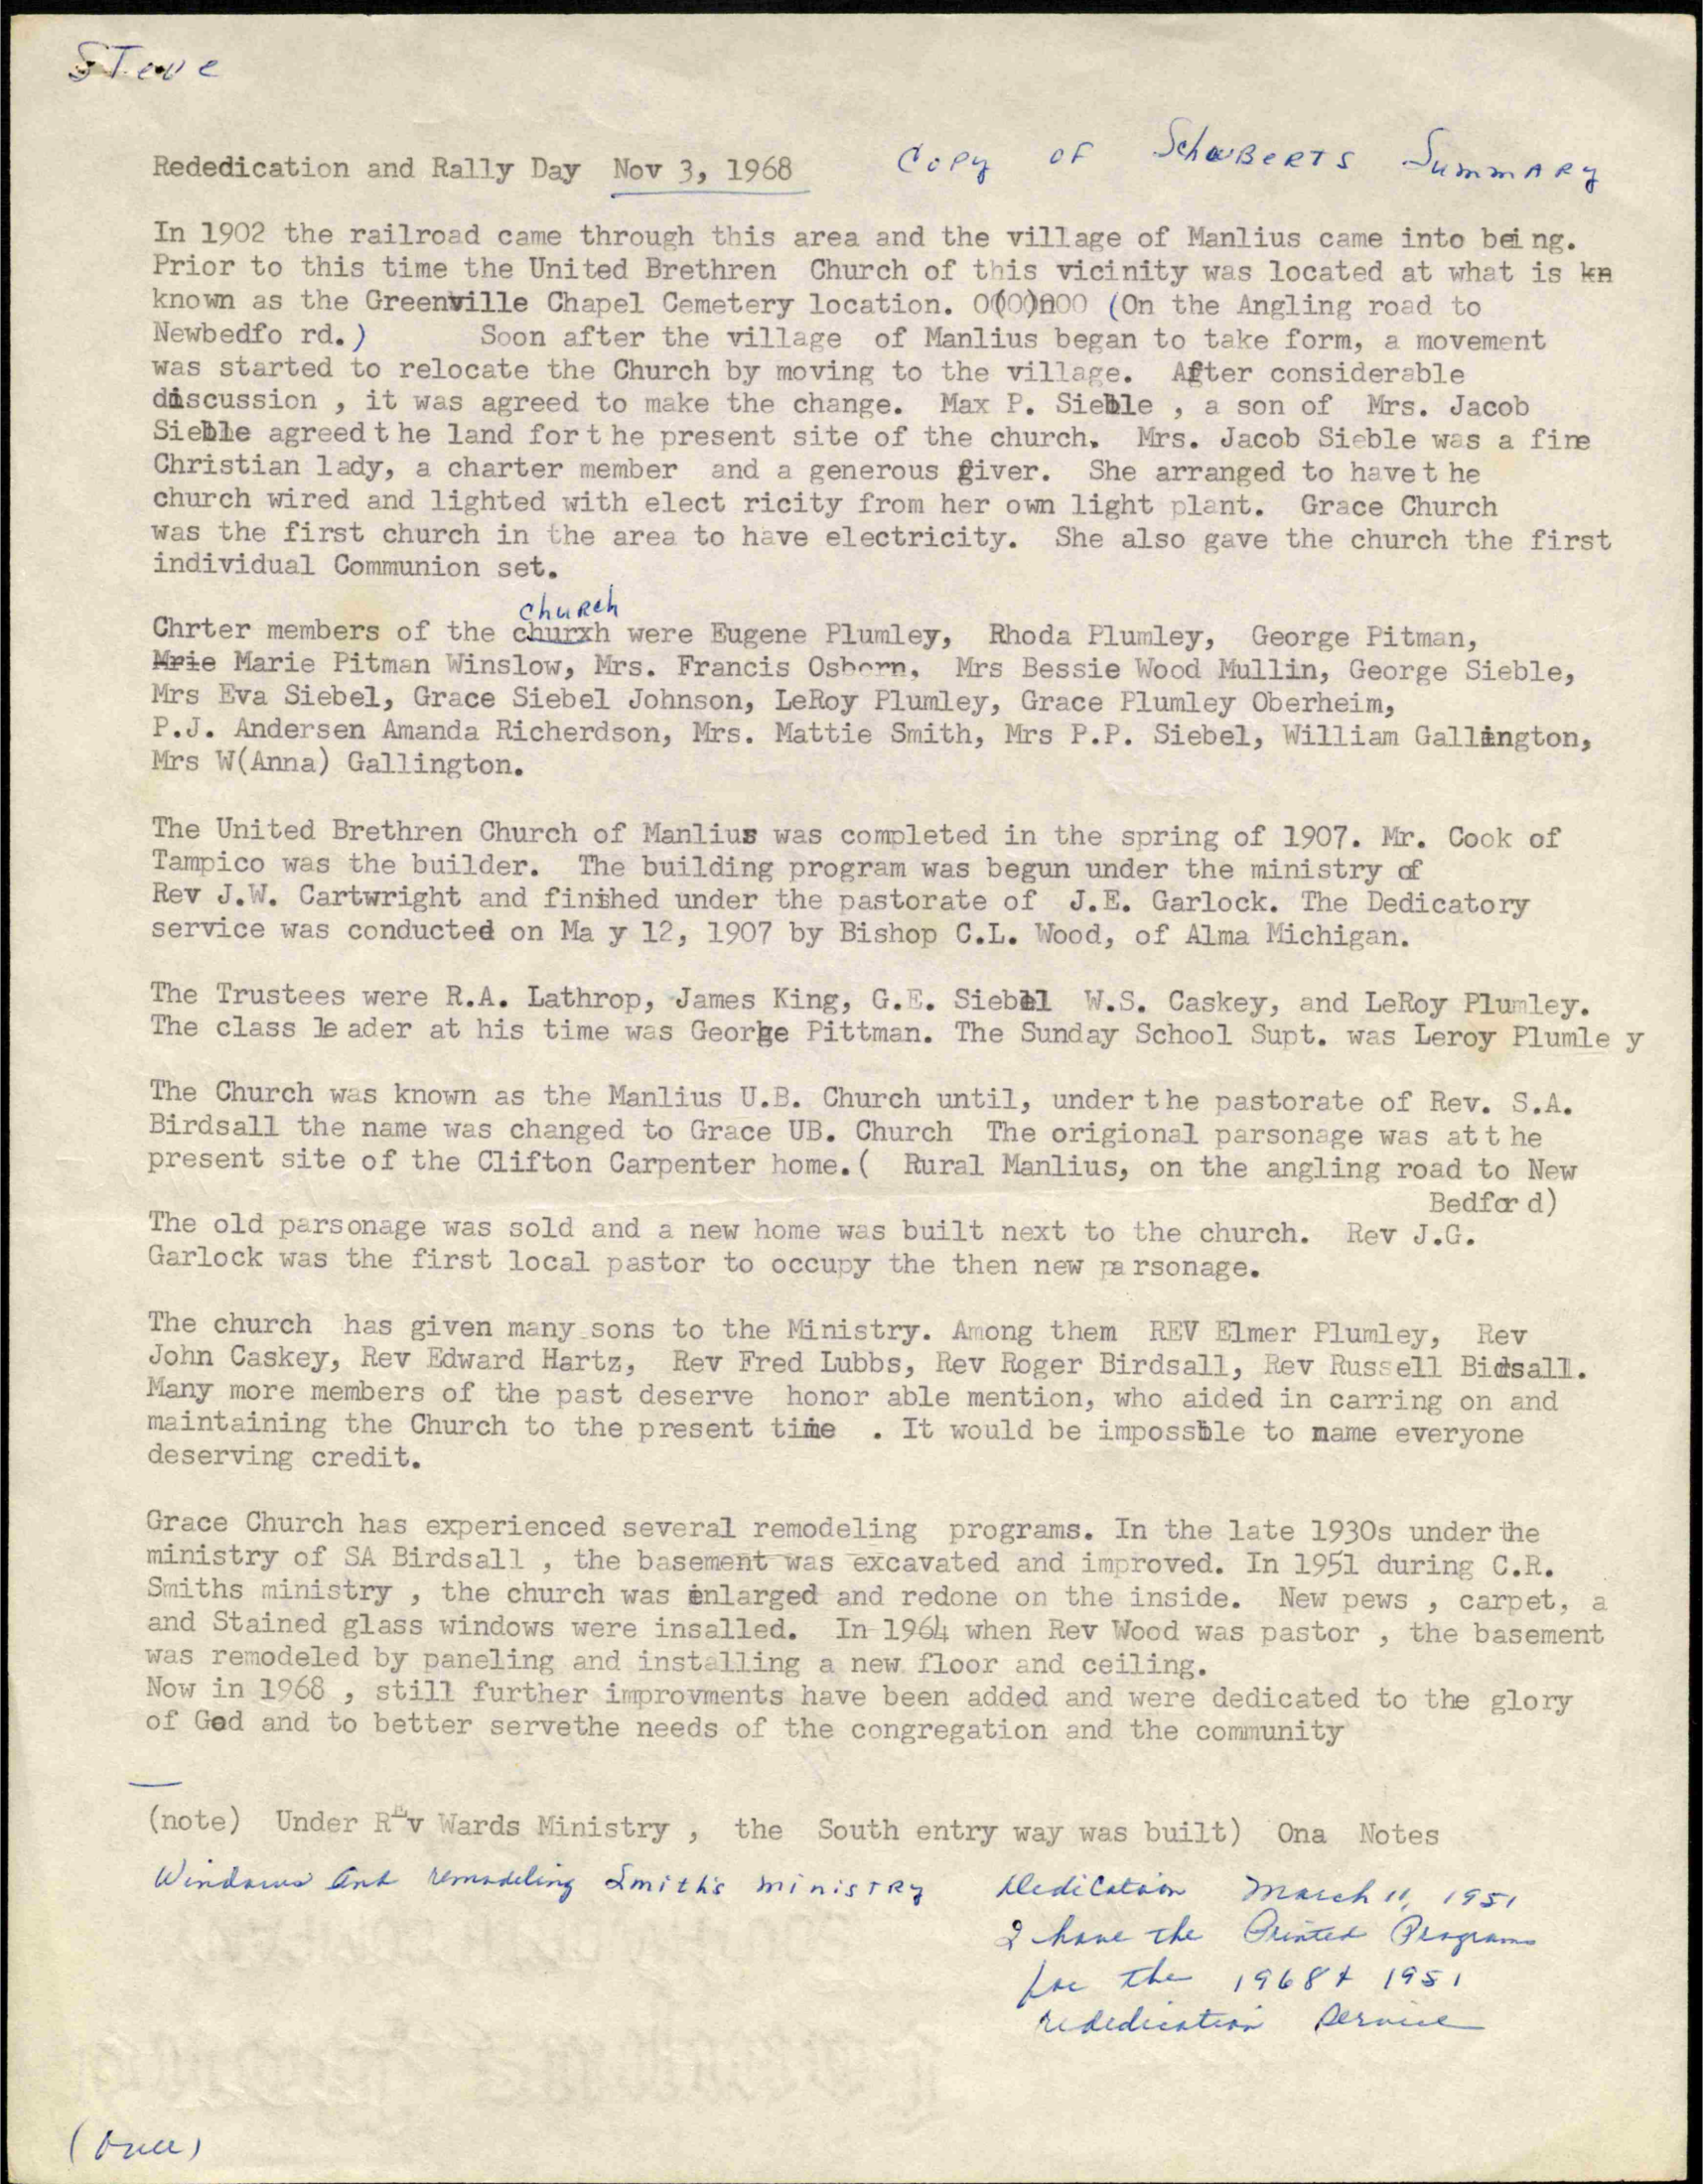 Steve
Rededication and Rally Day Nov 3, 1968 Copy of Schuberts Summary
In 1902 the railroad came through this area and the village of Manlius came into being.
Prior to this time the United Brethren Church of this vicinity was located at what is kn
known as the Greenville Chapel Cemetery location. (On the Angling road to
Newbedfo rd.) Soon after the village of Manlius began to take form, a movement
was started to relocate the Church by moving to the village. After considerable
discussion , it was agreed to make the change. Max P. Sieble , a son of Mrs. Jacob
Sieble agreed t he land for t he present site of the church. Mrs. Jacob Sieble was a fine
Christian lady, a charter member and a generous giver. She arranged to have t he
church wired and lighted with elect ricity from her own light plant. Grace Church
was the first church in the area to have electricity. She also gave the church the first
individual Communion set.
church
Chrter members of the churxh were Eugene Plumley, Rhoda Plumley, George Pitman,
Mrie Marie Pitman Winslow, Mrs. Francis Osborn, Mrs Bessie Wood Mullin, George Sieble,
Mrs Eva Siebel, Grace Siebel Johnson, LeRoy Plumley, Grace Plumley Oberheim,
P.J. Andersen Amanda Richerdson, Mrs. Mattie Smith, Mrs P.P. Siebel, William Gallington,
Mrs W(Anna) Gallington.
The United Brethren Church of Manlius was completed in the spring of 1907. Mr. Cook of
Tampico was the builder. The building program was begun under the ministry of
Rev J.W. Cartwright and finished under the pastorate of J.E. Garlock. The Dedicatory
service was conducted on Ma y 12, 1907 by Bishop C.L. Wood, of Alma Michigan.
The Trustees were R.A. Lathrop, James King, G.E. Siebel W.S. Caskey, and LeRoy Plumley.
The class le ader at his time was George Pittman. The Sunday School Supt. was Leroy Plumle y
The Church was known as the Manlius U.B. Church until, under t he pastorate of Rev. S.A.
Birdsall the name was changed to Grace UB. Church The origional parsonage was at t he
present site of the Clifton Carpenter home.( Rural Manlius, on the angling road to New
Bedfor d)
The old parsonage was sold and a new home was built next to the church. Rev J.G.
Garlock was the first local pastor to occupy the then new pa rsonage.
The church has given many sons to the Ministry. Among them REV Elmer Plumley, Rev
John Caskey, Rev Edward Hartz, Rev Fred Lubbs, Rev Roger Birdsall, Rev Russell Bidsall.
Many more members of the past deserve honor able mention, who aided in carring on and
maintaining the Church to the present time . It would be impossble to name everyone
deserving credit.
Grace Church has experienced several remodeling programs. In the late 1930s under the
ministry of SA Birdsall , the basement was excavated and improved. In 1951 during C.R.
Smiths ministry , the church was enlarged and redone on the inside. New pews , carpet, a
and Stained glass windows were insalled. In 1964 when Rev Wood was pastor , the basement
was remodeled by paneling and installing a new floor and ceiling.
Now in 1968 , still further improvments have been added and were dedicated to the glory
of God and to better servethe needs of the congregation and the community
(note) Under REv Wards Ministry , the South entry way was built) Ona Notes
Windows and remodeling Smith's ministry Dedication March 11, 1951
I have the Printed Programs
for the 1968 & 1951
rededication service
(over)